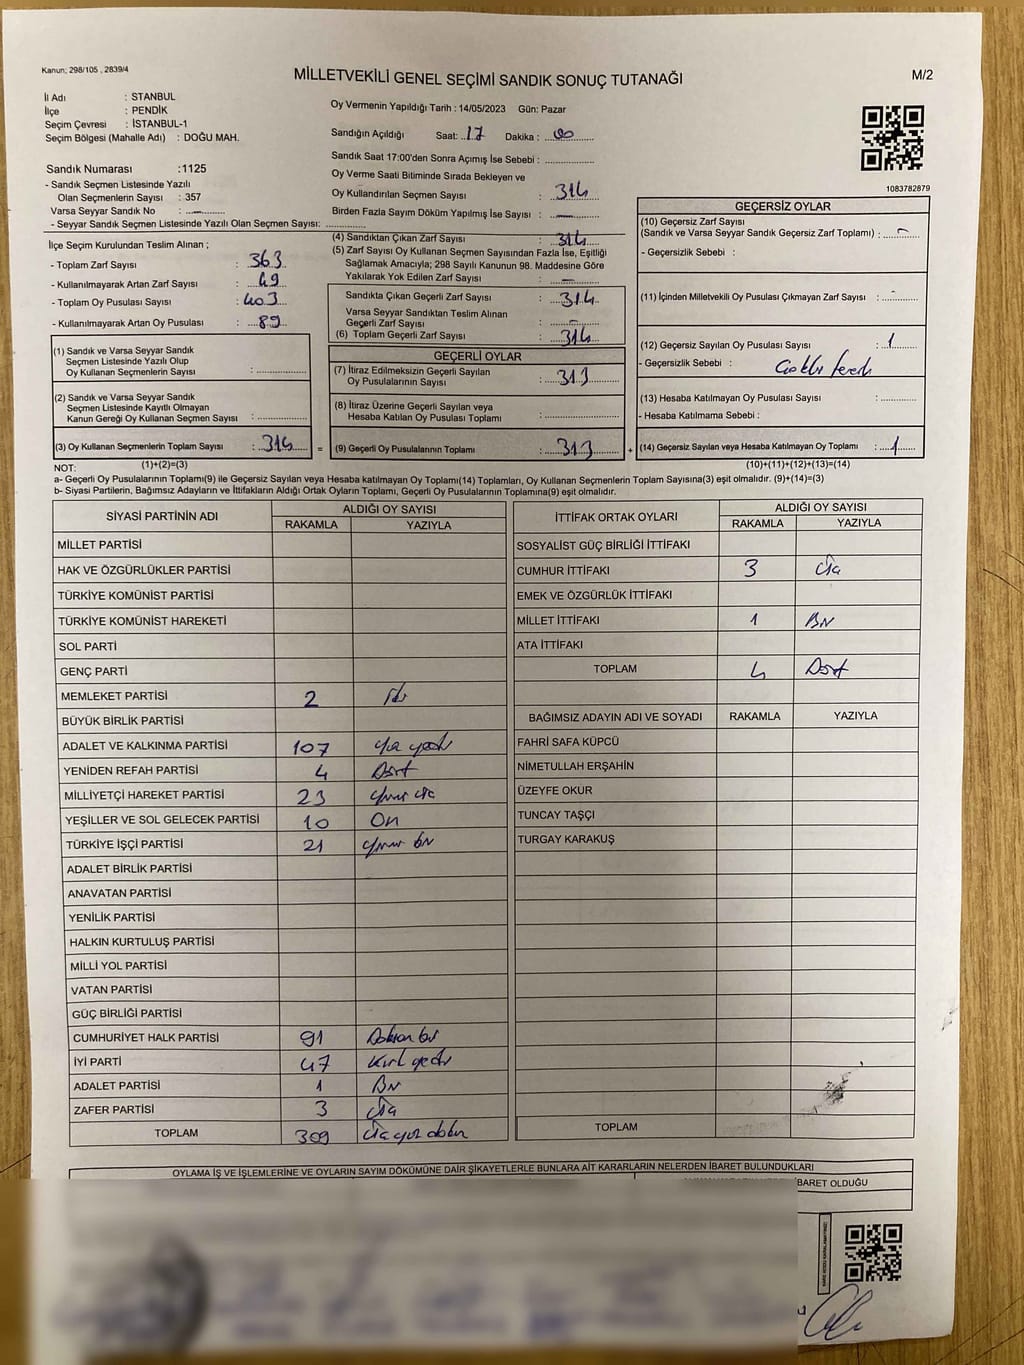 Kanun; 298/105 , 2839/4
MİLLETVEKİLİ GENEL SEÇİMİ SANDIK SONUÇ TUTANAĞI
M/2
İl Adı : STANBUL
İlçe : PENDİK
Seçim Çevresi : İSTANBUL-1
Seçim Bölgesi (Mahalle Adı) : DOĞU MAH.
Sandık Numarası :1125
- Sandık Seçmen Listesinde Yazılı
Olan Seçmenlerin Sayısı : 357
Varsa Seyyar Sandık No :
- Seyyar Sandık Seçmen Listesinde Yazılı Olan Seçmen Sayısı:
Oy Vermenin Yapıldığı Tarih : 14/05/2023 Gün: Pazar
Sandığın Açıldığı Saat: 17 Dakika : 00
Sandık Saat 17:00'den Sonra Açımış İse Sebebi :
Oy Verme Saati Bitiminde Sırada Bekleyen ve
Oy Kullandırılan Seçmen Sayısı : 314
Birden Fazla Sayım Döküm Yapılmış İse Sayısı : -
1083782879
İlçe Seçim Kurulundan Teslim Alınan ;
- Toplam Zarf Sayısı : 363
- Kullanılmayarak Artan Zarf Sayısı : 49
- Toplam Oy Pusulası Sayısı : 403
- Kullanılmayarak Artan Oy Pusulası : 89
(1) Sandık ve Varsa Seyyar Sandık
Seçmen Listesinde Yazılı Olup
Oy Kullanan Seçmenlerin Sayısı :
(2) Sandık ve Varsa Seyyar Sandık
Seçmen Listesinde Kayıtlı Olmayan
Kanun Gereği Oy Kullanan Seçmen Sayısı :
(3) Oy Kullanan Seçmenlerin Toplam Sayısı : 314 =
(4) Sandıktan Çıkan Zarf Sayısı : 314
(5) Zarf Sayısı Oy Kullanan Seçmen Sayısından Fazla İse, Eşitliği
Sağlamak Amacıyla; 298 Sayılı Kanunun 98. Maddesine Göre
Yakılarak Yok Edilen Zarf Sayısı : -
Sandıkta Çıkan Geçerli Zarf Sayısı : 314
Varsa Seyyar Sandıktan Teslim Alınan
Geçerli Zarf Sayısı : -
(6) Toplam Geçerli Zarf Sayısı : 314
GEÇERLİ OYLAR
(7) İtiraz Edilmeksizin Geçerli Sayılan
Oy Pusulalarının Sayısı : 313
(8) İtiraz Üzerine Geçerli Sayılan veya
Hesaba Katılan Oy Pusulası Toplamı :
(9) Geçerli Oy Pusulalarının Toplamı : 313 +
GEÇERSİZ OYLAR
(10) Geçersiz Zarf Sayısı
(Sandık ve Varsa Seyyar Sandık Geçersiz Zarf Toplamı) : -
- Geçersizlik Sebebi :
(11) İçinden Milletvekili Oy Pusulası Çıkmayan Zarf Sayısı : -
(12) Geçersiz Sayılan Oy Pusulası Sayısı : 1
- Geçersizlik Sebebi :
(13) Hesaba Katılmayan Oy Pusulası Sayısı :
- Hesaba Katılmama Sebebi :
(14) Geçersiz Sayılan veya Hesaba Katılmayan Oy Toplamı : 1
NOT: (1)+(2)=(3) (10)+(11)+(12)+(13)=(14)
a- Geçerli Oy Pusulalarının Toplamı(9) ile Geçersiz Sayılan veya Hesaba katılmayan Oy Toplamı(14) Toplamları, Oy Kullanan Seçmenlerin Toplam Sayısına(3) eşit olmalıdır. (9)+(14)=(3)
b- Siyasi Partilerin, Bağımsız Adayların ve İttifakların Aldığı Ortak Oyların Toplamı, Geçerli Oy Pusulalarının Toplamına(9) eşit olmalıdır.
SİYASİ PARTİNİN ADI ALDIĞI OY SAYISI
RAKAMLA YAZIYLA
MİLLET PARTİSİ
HAK VE ÖZGÜRLÜKLER PARTİSİ
TÜRKİYE KOMÜNİST PARTİSİ
TÜRKİYE KOMÜNİST HAREKETİ
SOL PARTİ
GENÇ PARTİ
MEMLEKET PARTİSİ 2 iki
BÜYÜK BİRLİK PARTİSİ
ADALET VE KALKINMA PARTİSİ 107 yüz yedi
YENİDEN REFAH PARTİSİ 4 Dört
MİLLİYETÇİ HAREKET PARTİSİ 23 yirmi üç
YEŞİLLER VE SOL GELECEK PARTİSİ 10 On
TÜRKİYE İŞÇİ PARTİSİ 21 yirmi bir
ADALET BİRLİK PARTİSİ
ANAVATAN PARTİSİ
YENİLİK PARTİSİ
HALKIN KURTULUŞ PARTİSİ
MİLLİ YOL PARTİSİ
VATAN PARTİSİ
GÜÇ BİRLİĞİ PARTİSİ
CUMHURİYET HALK PARTİSİ 91 Doksan bir
İYİ PARTİ 47 Kırk yedi
ADALET PARTİSİ 1 Bir
ZAFER PARTİSİ 3 Üç
TOPLAM 309 Üç yüz dokuz
İTTİFAK ORTAK OYLARI ALDIĞI OY SAYISI
RAKAMLA YAZIYLA
SOSYALİST GÜÇ BİRLİĞİ İTTİFAKI
CUMHUR İTTİFAKI 3 Üç
EMEK VE ÖZGÜRLÜK İTTİFAKI
MİLLET İTTİFAKI 1 Bir
ATA İTTİFAKI
TOPLAM 4 Dört
BAĞIMSIZ ADAYIN ADI VE SOYADI RAKAMLA YAZIYLA
FAHRİ SAFA KÜPCÜ
NİMETULLAH ERŞAHİN
ÜZEYFE OKUR
TUNCAY TAŞÇI
TURGAY KARAKUŞ
TOPLAM
OYLAMA İŞ VE İŞLEMLERİNE VE OYLARIN SAYIM DÖKÜMÜNE DAİR ŞİKAYETLERLE BUNLARA AİT KARARLARIN NELERDEN İBARET BULUNDUKLARI
İBARET OLDUĞU